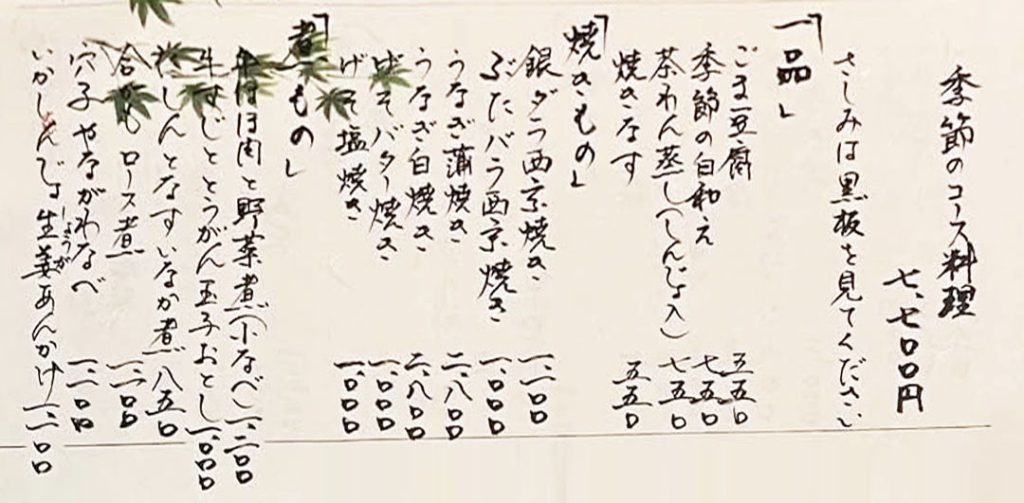 季節のコース料理
七、七〇〇円
さしみは黒板を見てください
「一品」
ごま豆腐 五五〇
季節の白和え 七五〇
茶わん蒸し(しんじょ入) 七五〇
焼きなす 五五〇
「焼きもの」
銀ダラ西京焼き 一、一〇〇
ぶたバラ西京焼き 一、〇〇〇
うなぎ蒲焼き 二、八〇〇
うなぎ白焼き 二、八〇〇
げそバター焼き 一、〇〇〇
げそ塩焼き 一、〇〇〇
「煮もの」
牛ほほ肉と野菜煮(小なべ) 一、二〇〇
牛すじととうがん玉子おとし 一、〇〇〇
にしんとなすいなか煮 八五〇
合がもロース煮 一、二〇〇
穴子やながわなべ 一、二〇〇
いかしんじょ生姜あんかけ 一、一〇〇
しょうが